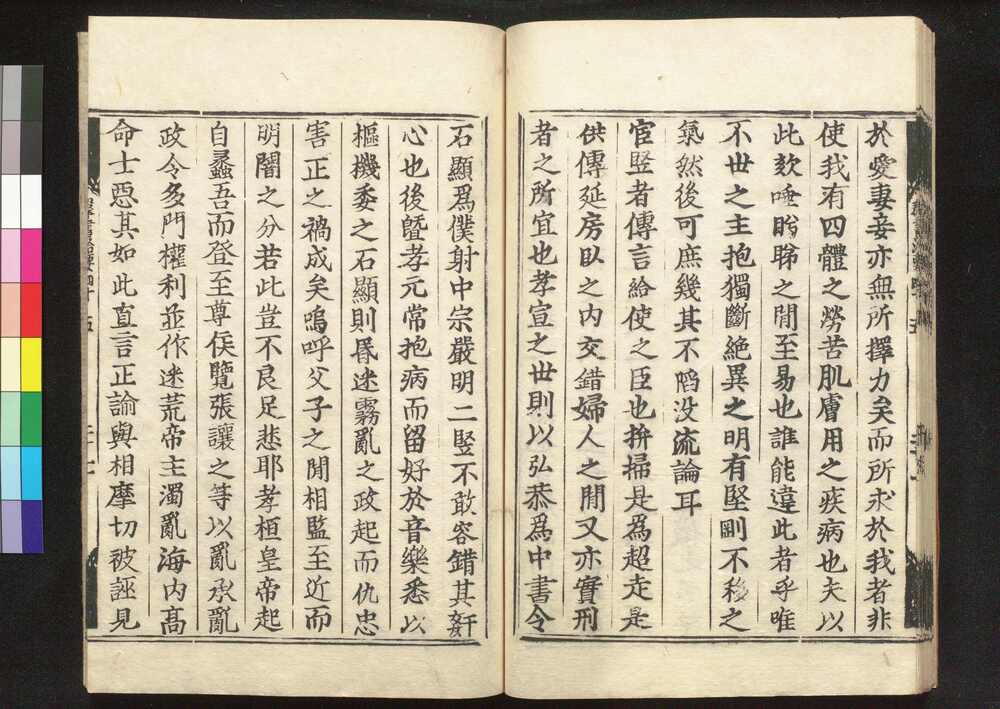 於愛妻妾亦無所擇力矣而所求於我者非
使我有四體之勞苦肌膚用之疾病也夫以
此欬唾盻睇之閒至易也誰能違此者乎唯
不世之主抱獨斷絶異之明有堅剛不移之
氣然後可庶幾其不䧟没流論耳
宦竪者傳言給使之臣也拚掃是為超走是
供傳延房臥之内交錯婦人之閒又亦實刑
者之所宜也孝宣之世則以弘恭爲中書令
石顯爲僕射中宗嚴明二竪不敢容錯其姧
心也後曁孝元常抱病而留好於音樂悉以
樞機委之石顯則昬迷霧亂之政起而仇忠
害正之禍成矣嗚呼父子之閒相監至近而
明闇之分若此豈不良足悲耶孝桓皇帝起
自蠡吾而登至尊侯覽張讓之等以亂承亂
政令多門權利並作迷荒帝主濁亂海内髙
命士惡其如此直言正諭與相摩切被誣見